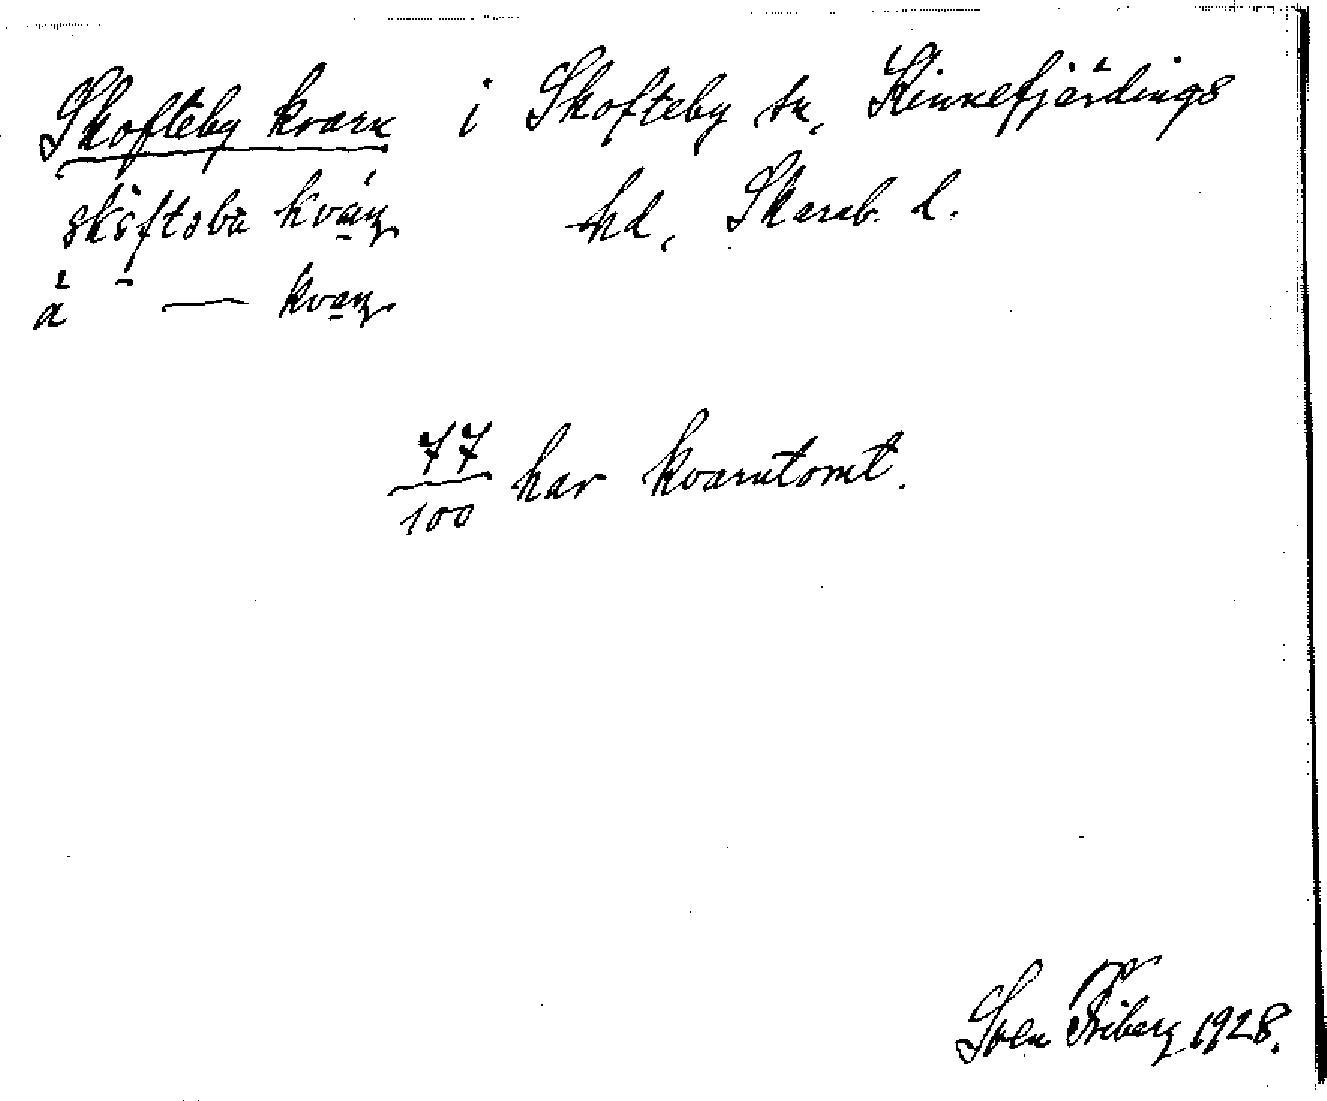 Skofteby kvarn i Skofteby sn, Kinnefjärdings
sköftəba kván hd, Skarab. l.
à — kvan
77/100 har kvarntomt.
Sven Friberg 1928.